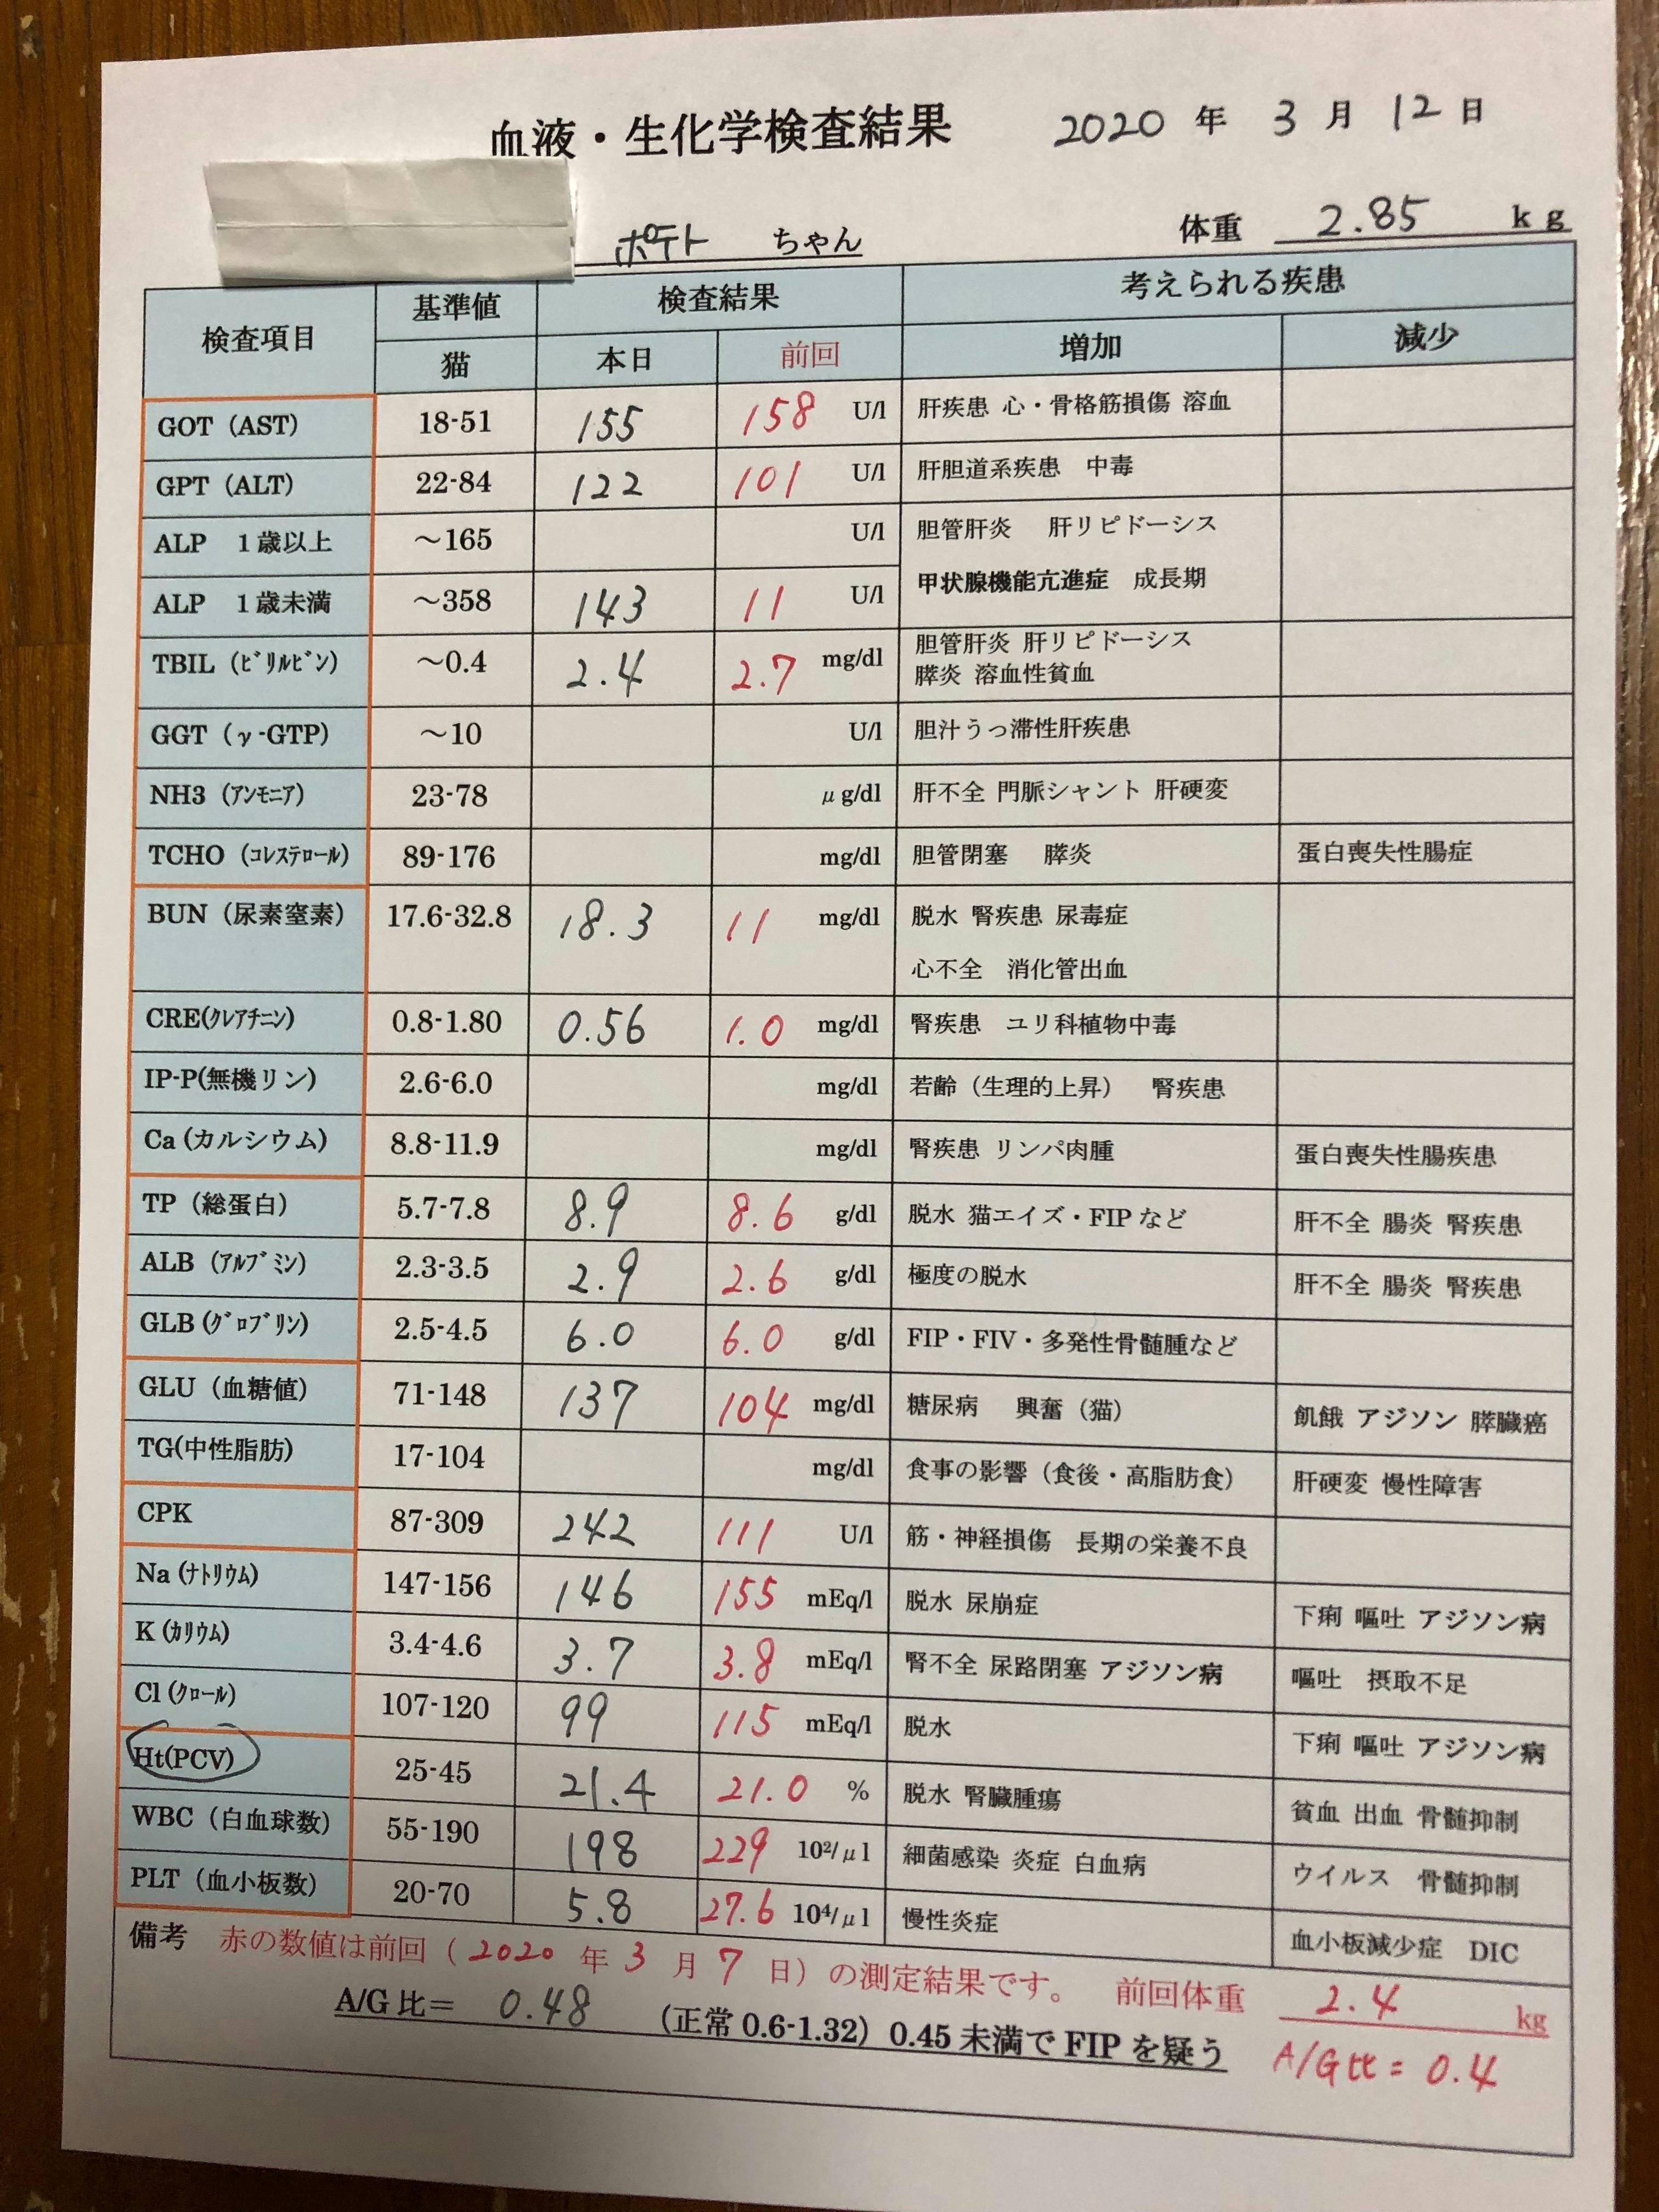 血液・生化学検査結果 2020 年 3 月 12 日
ポテト ちゃん 体重 2.85 kg
検査項目 基準値 検査結果 考えられる疾患
猫 本日 前回 増加 減少
GOT (AST) 18-51 155 158 U/l 肝疾患 心・骨格筋損傷 溶血
GPT (ALT) 22-84 122 101 U/l 肝胆道系疾患 中毒
ALP 1歳以上 ～165 U/l 胆管肝炎 肝リピドーシス
ALP 1歳未満 ～358 143 11 U/l 甲状腺機能亢進症 成長期
TBIL (ﾋﾞﾘﾙﾋﾞﾝ) ～0.4 2.4 2.7 mg/dl 胆管肝炎 肝リピドーシス
膵炎 溶血性貧血
GGT (γ-GTP) ～10 U/l 胆汁うっ滞性肝疾患
NH3 (ｱﾝﾓﾆｱ) 23-78 μg/dl 肝不全 門脈シャント 肝硬変
TCHO (ｺﾚｽﾃﾛｰﾙ) 89-176 mg/dl 胆管閉塞 膵炎 蛋白喪失性腸症
BUN (尿素窒素) 17.6-32.8 18.3 11 mg/dl 脱水 腎疾患 尿毒症
心不全 消化管出血
CRE(ｸﾚｱﾁﾆﾝ) 0.8-1.80 0.56 1.0 mg/dl 腎疾患 ユリ科植物中毒
IP-P(無機リン) 2.6-6.0 mg/dl 若齢（生理的上昇） 腎疾患
Ca (カルシウム) 8.8-11.9 mg/dl 腎疾患 リンパ肉腫 蛋白喪失性腸疾患
TP (総蛋白) 5.7-7.8 8.9 8.6 g/dl 脱水 猫エイズ・FIP など 肝不全 腸炎 腎疾患
ALB (ｱﾙﾌﾞﾐﾝ) 2.3-3.5 2.9 2.6 g/dl 極度の脱水 肝不全 腸炎 腎疾患
GLB (ｸﾞﾛﾌﾞﾘﾝ) 2.5-4.5 6.0 6.0 g/dl FIP・FIV・多発性骨髄腫など
GLU (血糖値) 71-148 137 104 mg/dl 糖尿病 興奮（猫） 飢餓 アジソン 膵臓癌
TG(中性脂肪) 17-104 mg/dl 食事の影響（食後・高脂肪食） 肝硬変 慢性障害
CPK 87-309 242 111 U/l 筋・神経損傷 長期の栄養不良
Na (ﾅﾄﾘｳﾑ) 147-156 146 155 mEq/l 脱水 尿崩症 下痢 嘔吐 アジソン病
K (ｶﾘｳﾑ) 3.4-4.6 3.7 3.8 mEq/l 腎不全 尿路閉塞 アジソン病 嘔吐 摂取不足
Cl (ｸﾛｰﾙ) 107-120 99 115 mEq/l 脱水 下痢 嘔吐 アジソン病
Ht(PCV) 25-45 21.4 21.0 % 脱水 腎臓腫瘍 貧血 出血 骨髄抑制
WBC (白血球数) 55-190 198 229 10²/μl 細菌感染 炎症 白血病 ウイルス 骨髄抑制
PLT (血小板数) 20-70 5.8 27.6 10⁴/μl 慢性炎症 血小板減少症 DIC
備考 赤の数値は前回（2020 年 3 月 7 日）の測定結果です。 前回体重 2.4 kg
A/G 比＝ 0.48 (正常 0.6-1.32) 0.45 未満で FIP を疑う A/G比= 0.4